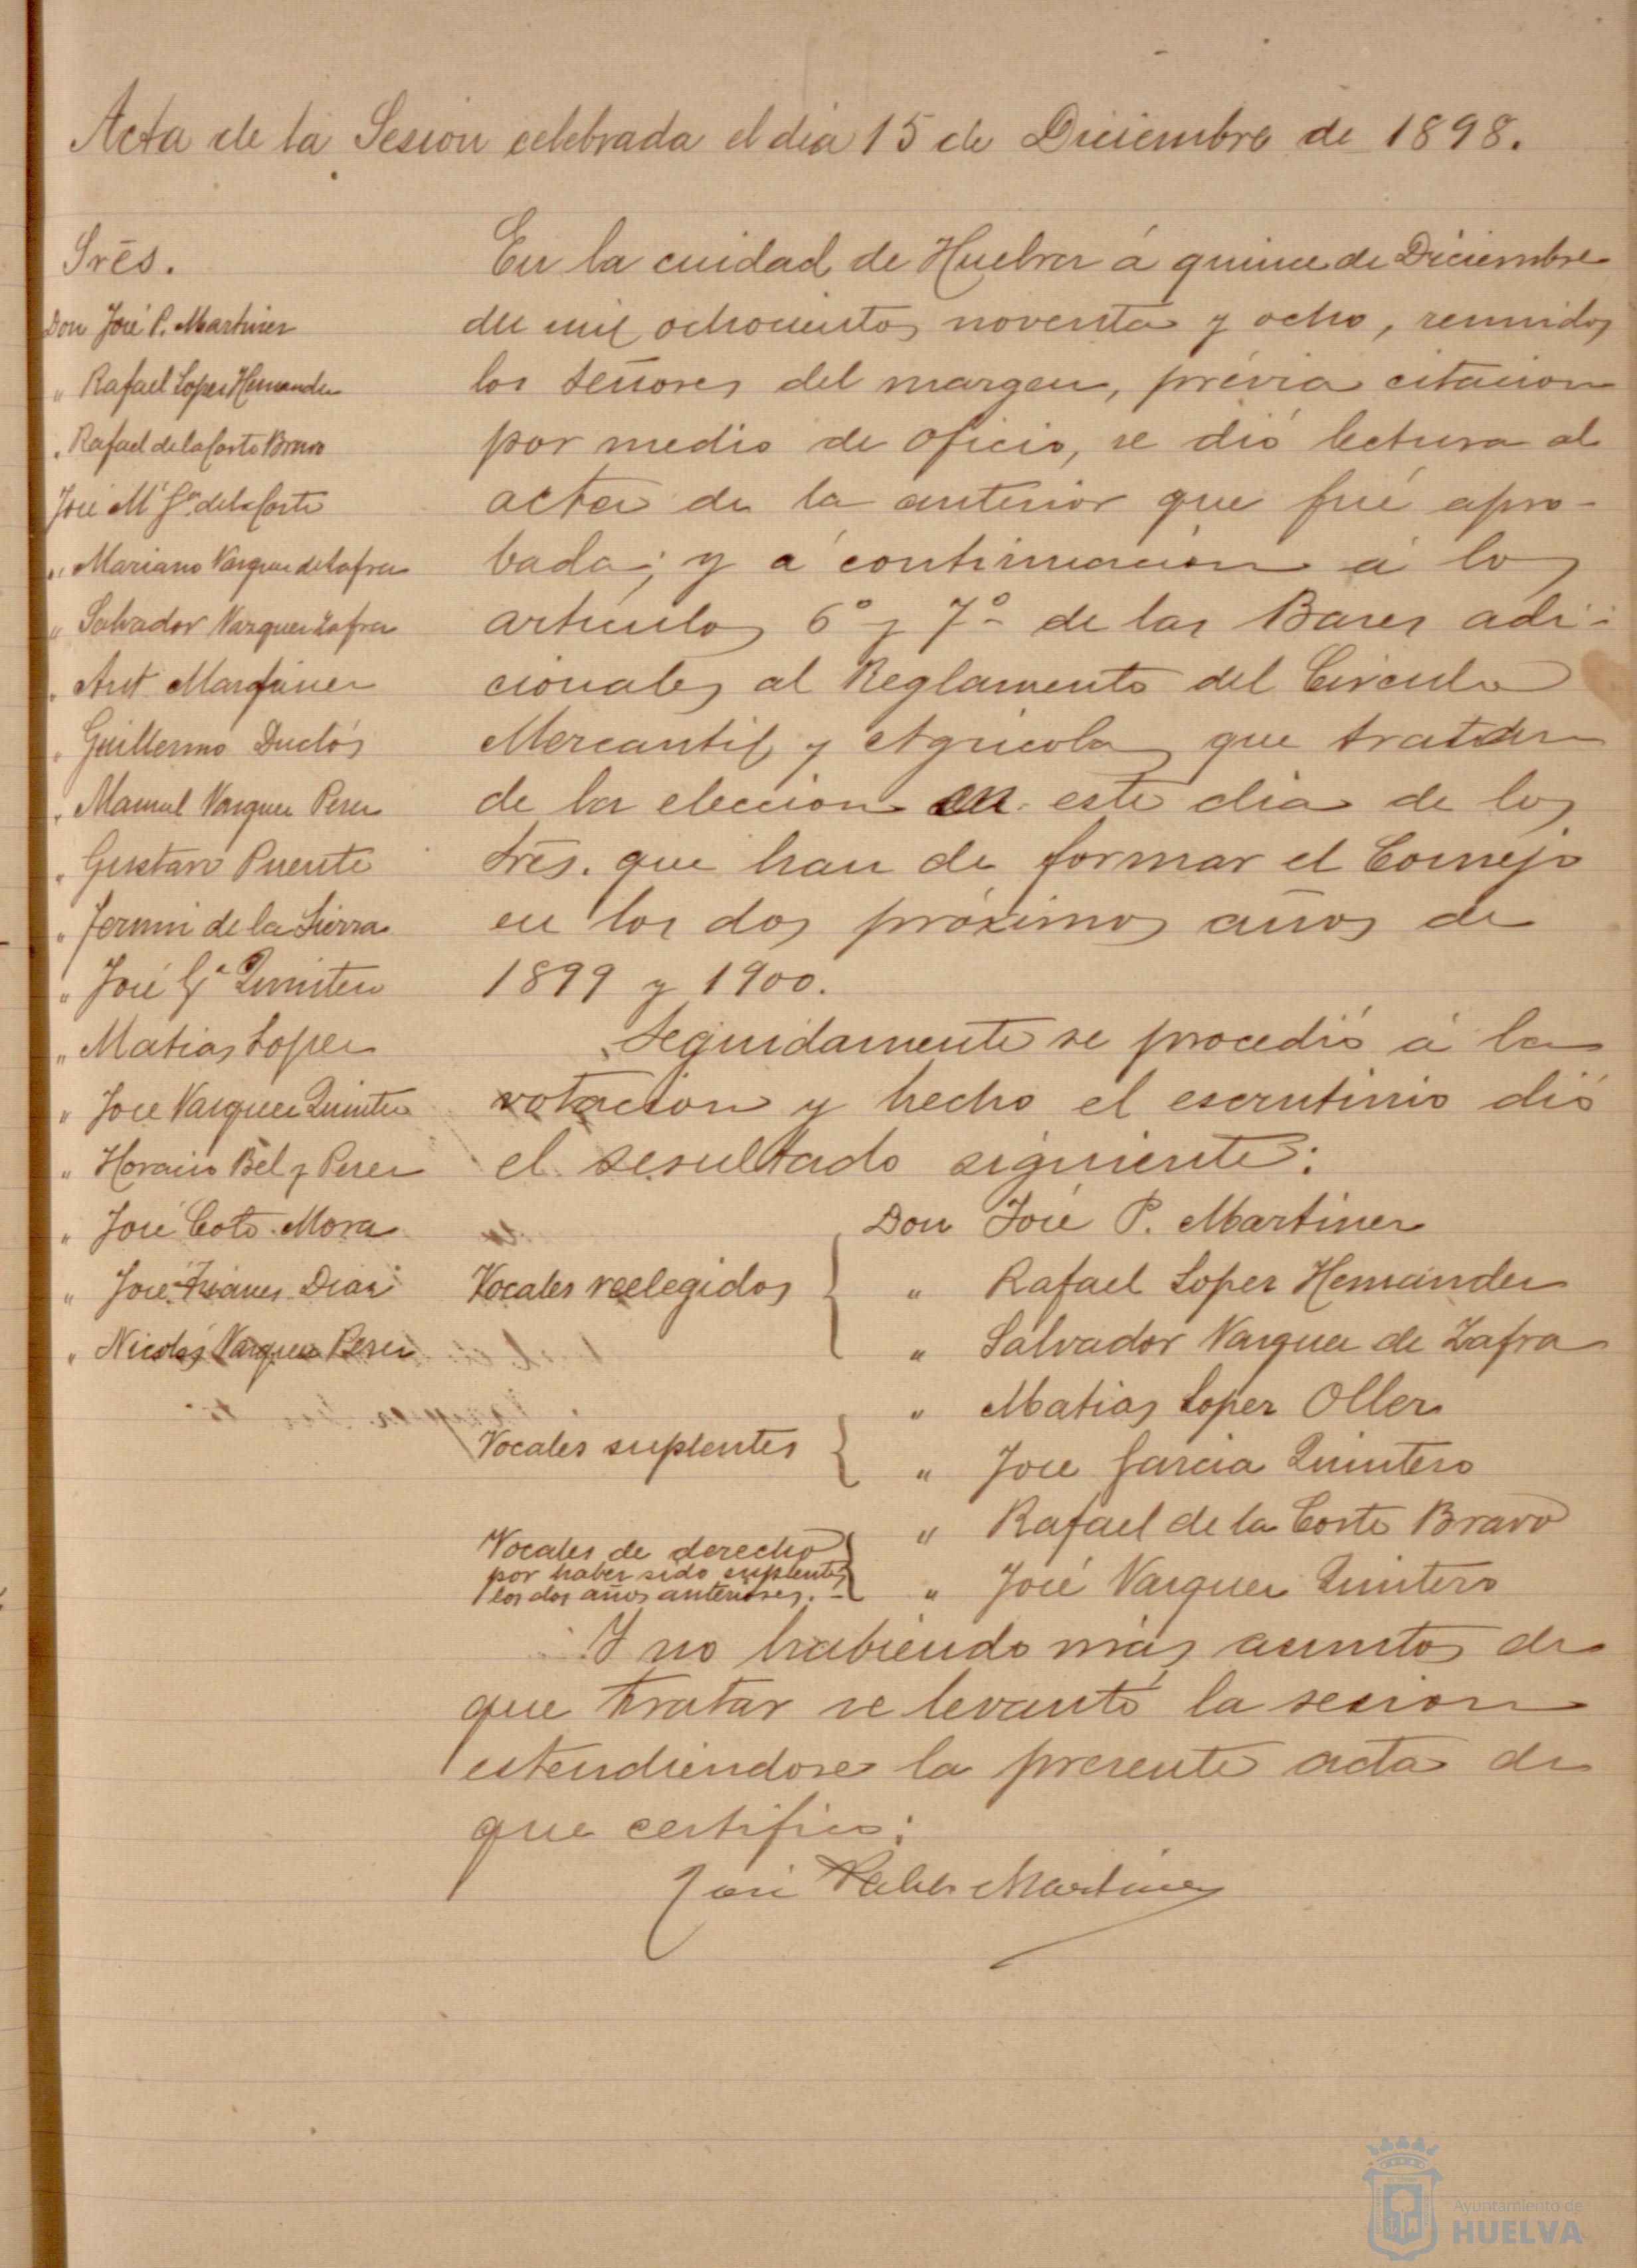 Acta de la Sesion celebrada el dia 15 de Diciembre de 1898.
Srēs.
Don José P. Martinez
" Rafael Lopez Hernandez
" Rafael de la Corte Bravo
José Mª Gª de la Corte
" Mariano Vazquez de Zafra
" Salvador Vazquez Zafra
" Ant
" Guillermo Duclós
" Manuel Vazquez Perez
" Gustavo Puente
" Fermin de la Sierra
" José Gª Quintero
" Matias Lopez
" José Vazquez Quintero
" Horacio Bel y Perez
" José Coto Mora
" José Diaz
" Nicolás Vazquez Perez
En la cuidad de Huelva á quince de Diciembre
de mil ochocientos noventa y ocho, reunidos
los señores del margen, prévia citacion
por medio de oficio, se dió lectura al
acta de la anterior que fué apro-
bada; y á continuacion á los
articulos 6º y 7º de las Bases adi-
cionales al Reglamento del Circulo
Mercantil y Agricola que tratan
de la eleccion en este dia de los
Srēs. que han de formar el Consejo
en los dos próximos años de
1899 y 1900.
Seguidamente se procedió á la
votacion y hecho el escrutinio dió
el resultado siguiente:
Don José P. Martinez
Vocales reelegidos { " Rafael Lopez Hernandez
" Salvador Vazquez de Zafra
" Matias Lopez Oller
Vocales suplentes { " José Garcia Quintero
" Rafael de la Corte Bravo
Vocales de derecho
por haber sido suplentes
los dos años anteriores. { " José Vazquez Quintero
Y no habiendo más asuntos de
que tratar se levantó la sesion
estendiendose la presente acta de
que certifico:
José Pablo Martinez
Ayuntamiento de
HUELVA